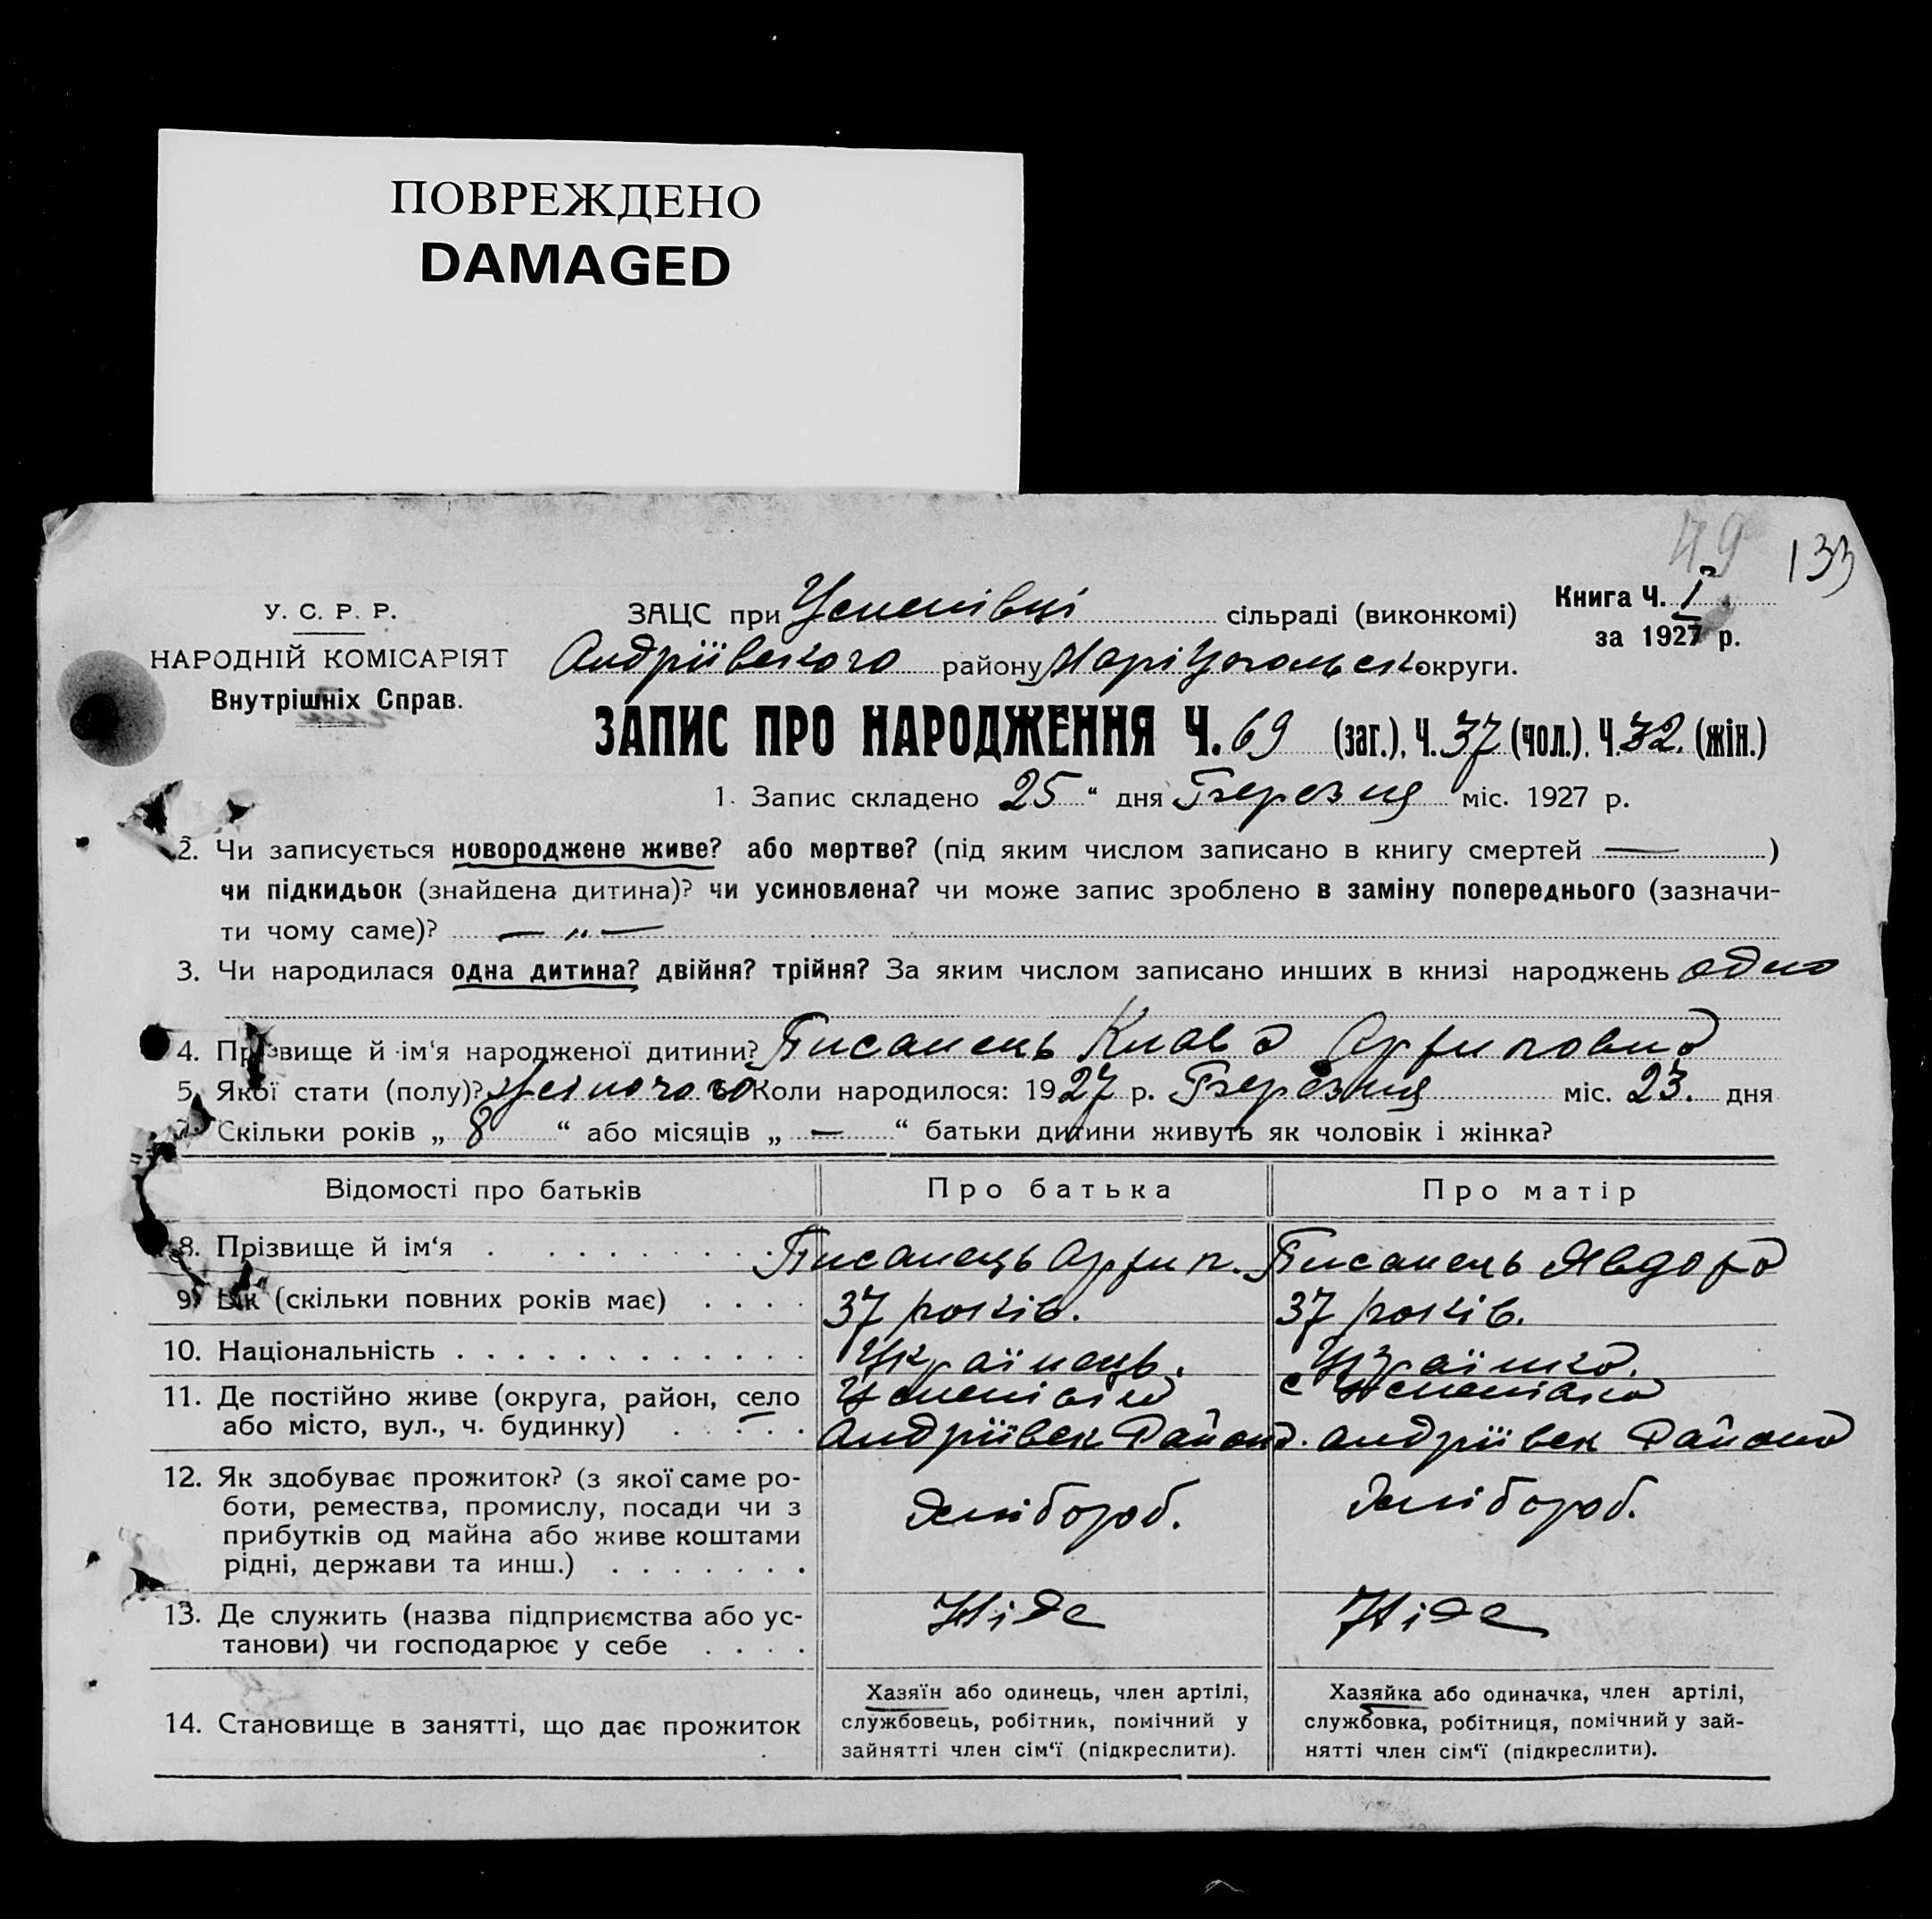 ПОВРЕЖДЕНО
DAMAGED
49 133
У. С. Р. Р.
НАРОДНІЙ КОМІСАРІЯТ
Внутрішніх Справ.
ЗАЦС при Успенівці сільраді (виконкомі)
Андріївского району Маріупольск округи.
Книга Ч. I
за 1927 р.
ЗАПИС ПРО НАРОДЖЕННЯ Ч. 69 (заг.), Ч. 37 (чол.). Ч. 32. (жін.)
1. Запис складено 25 “ дня Березня міс. 1927 р.
2. Чи записується новороджене живе? або мертве? (під яким числом записано в книгу смертей —)
чи підкидьок (знайдена дитина)? чи усиновлена? чи може запис зроблено в заміну попереднього (зазначи-
ти чому саме)? — „ —
3. Чи народилася одна дитина? двійня? трійня? За яким числом записано инших в книзі народжень одно
4. Прізвище й ім‘я народженої дитини? Писанець Клава Архиповна
5. Якої стати (полу)? Жіночого 6. Коли народилося: 1927 р. Березня міс. 23. дня
7. Скільки років „ 8 “ або місяців „ — “ батьки дитини живуть як чоловік і жінка?
Відомості про батьків Про батька Про матір
8. Прізвище й ім‘я Писанець Архип. Писанець Явдоха
9. Вік (скільки повних років має) 37 років. 37 років.
10. Національність Українець. Українка.
11. Де постійно живе (округа, район, село
або місто, вул., ч. будинку)
Успенівка
Андріївск Района.
с Успенівка
Андріївск Района
12. Як здобуває прожиток? (з якої саме ро-
боти, ремества, промислу, посади чи з
прибутків од майна або живе коштами
рідні, держави та инш.)
Хлібороб.
Хлібороб.
13. Де служить (назва підприємства або ус-
танови) чи господарює у себе
Ніде
Ніде
14. Становище в занятті, що дає прожиток
Хазяїн або одинець, член артілі,
службовець, робітник, помічний у
зайнятті член сім‘ї (підкреслити).
Хазяйка або одиначка, член артілі,
службовка, робітниця, помічний у зай-
нятті член сім‘ї (підкреслити).